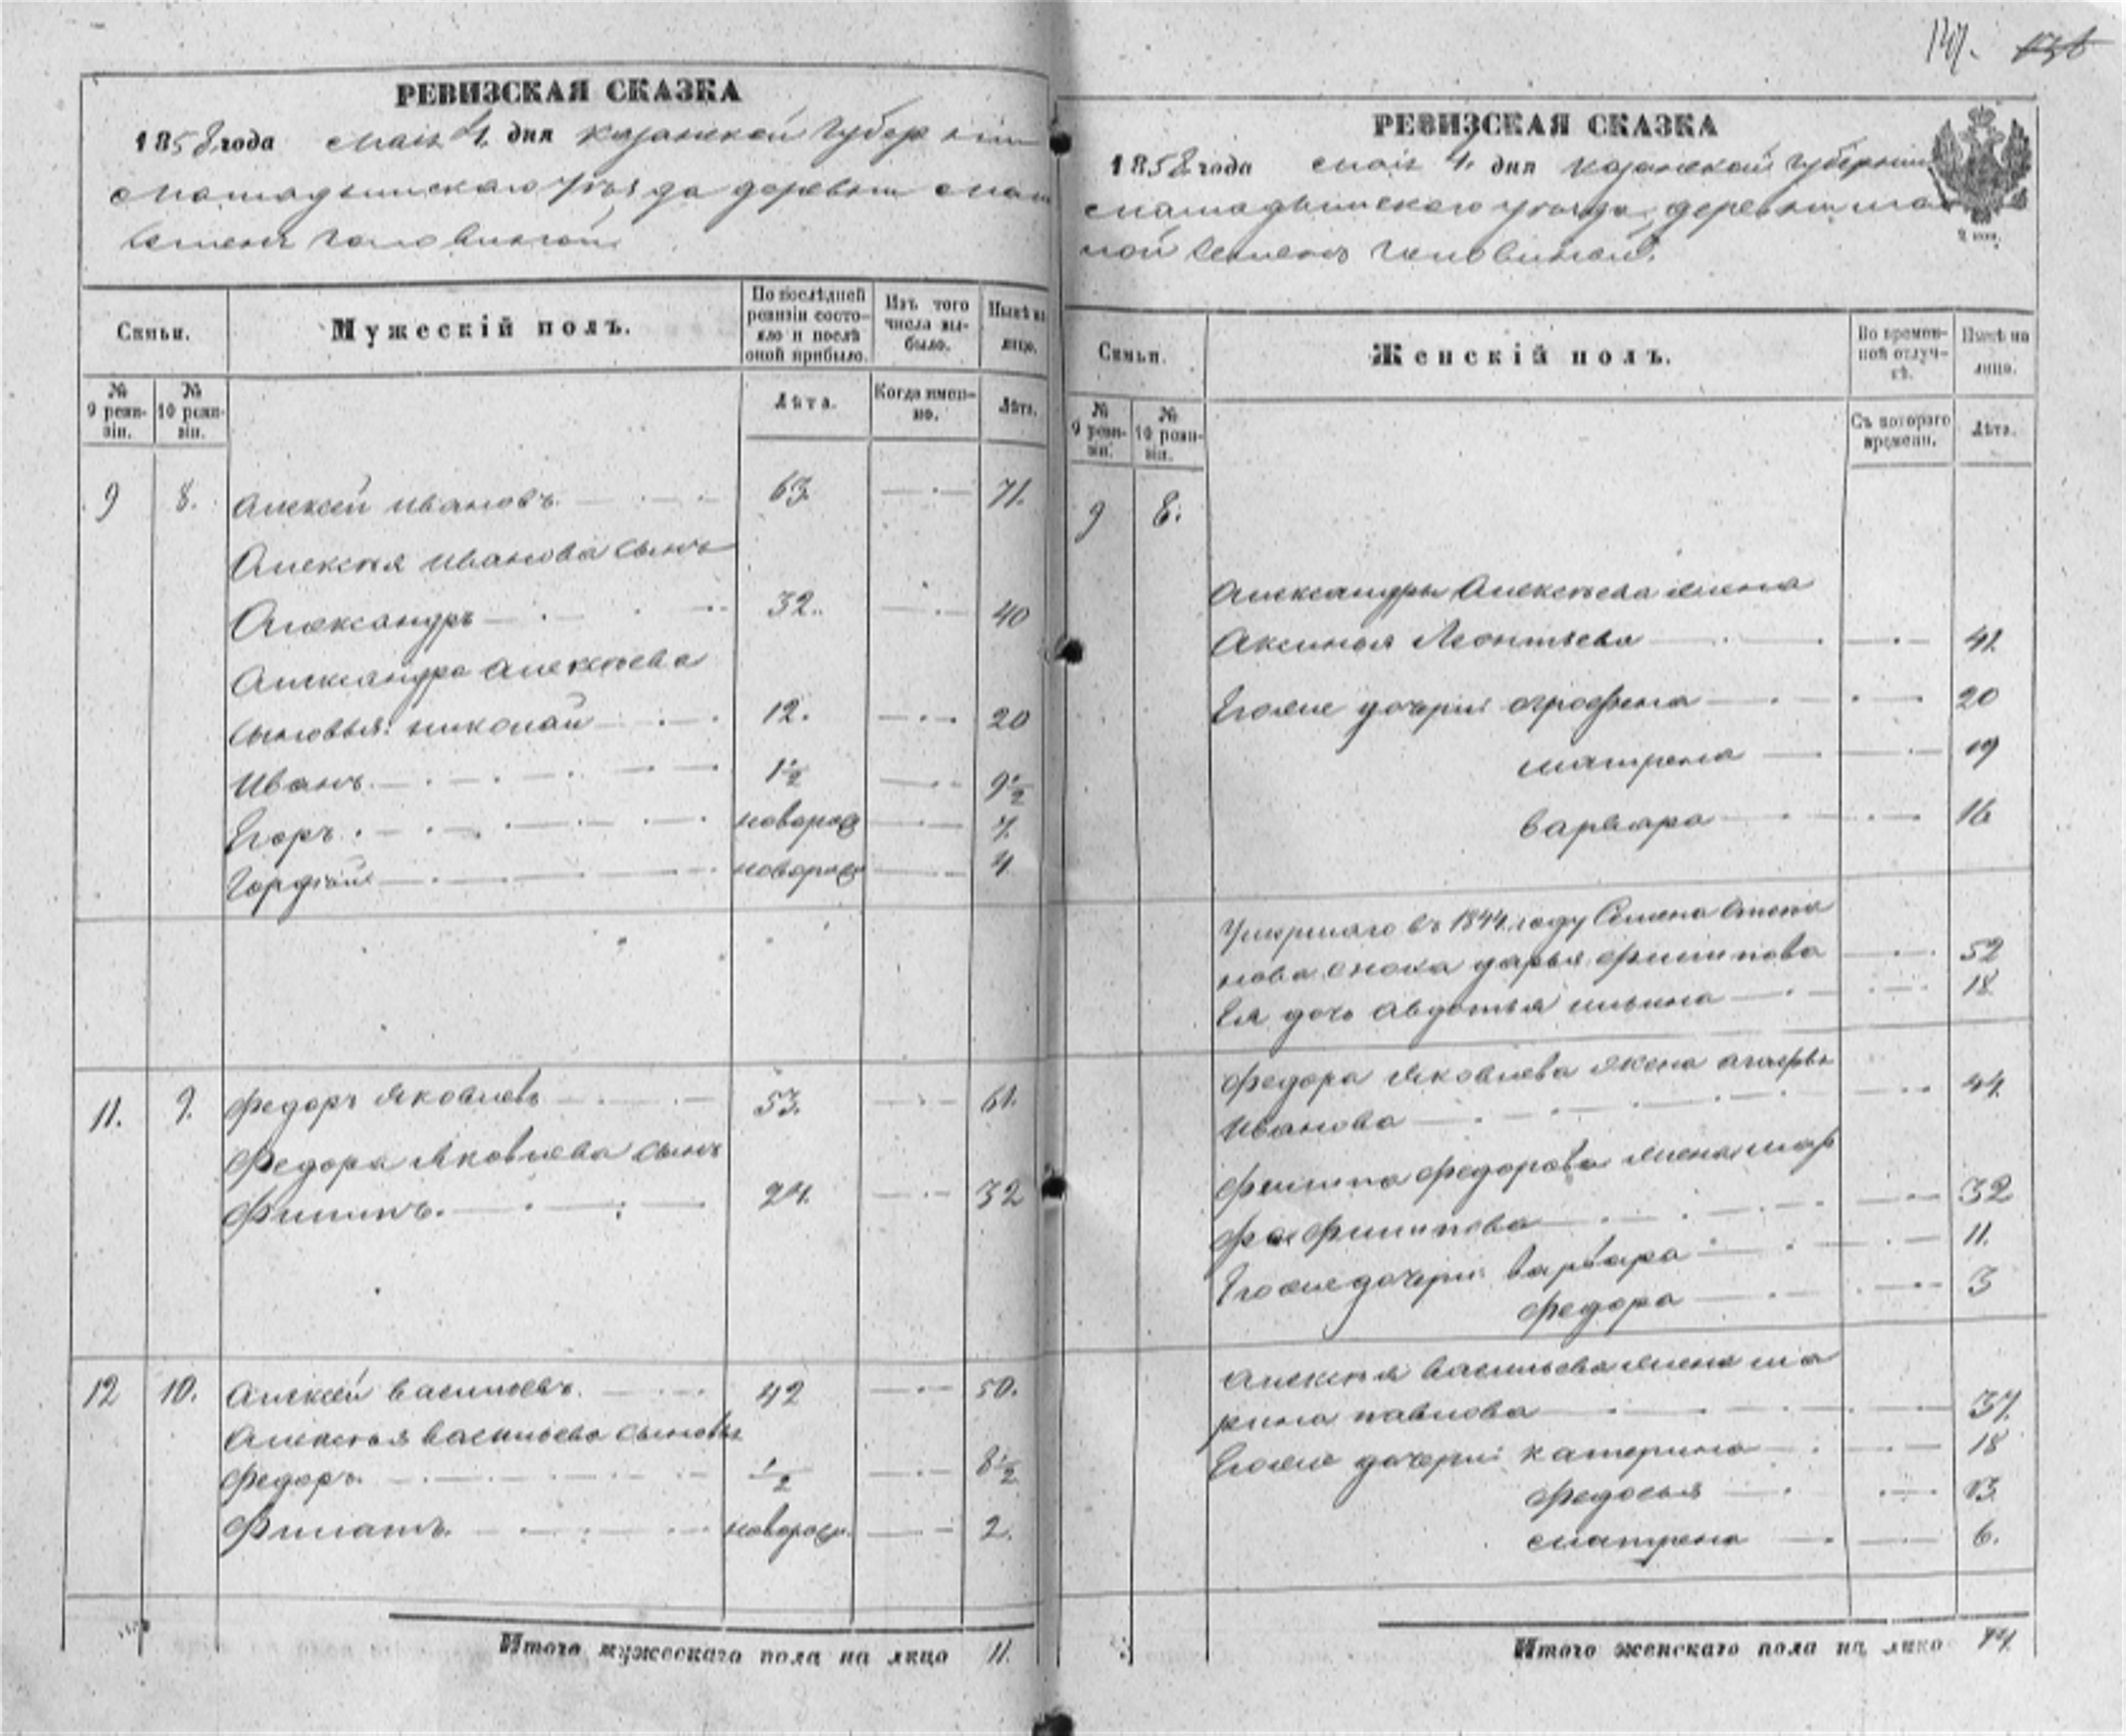 147. 136
РЕВИЗСКАЯ СКАЗКА
1858 года мая 4 дня казанской губернии
мамадышскаго уѣзда деревни
головиной
Семьи.
Мужескій полъ.
По послѣдней ревизіи состояло и послѣ оной прибыло.
Изъ того числа выбыло.
Нынѣ на лицо.
№ 9 ревизіи.
№ 10 ревизіи.
Лѣта.
Когда именно.
Лѣта.
9 8. Алексей ивановъ 63 71.
Алексѣя иванова сынъ
Александръ 32. 40
Александра алексѣева
сыновья: николай 12. 20
Иванъ 1 1/2 9 1/2
Егоръ новорож 7.
Гордѣй новорож 4
11. 9. Федоръ яковлевъ 53. 61.
Федора яковлева сынъ
Филипъ. 24. 32
12 10. Алексей васильевъ 42 50.
Алексѣя васильева сыновья
Федоръ. 1/2 8 1/2
Филатъ. новорож. 2.
Итого мужескаго пола на лицо 11.
РЕВИЗСКАЯ СКАЗКА
1858 года мая 4. дня казанской губернии
мамадышскаго уѣзда деревни
головиной.
2 коп.
Семьи.
Женскій полъ.
Во временной отлучкѣ.
Нынѣ на лицо.
№ 9 ревизіи.
№ 10 ревизіи.
Съ котораго времени.
Лѣта.
9 8.
Александры Алексѣева жена
Аксинья Леонтьева 41
Егоже дочери: огрофена 20
матрена 19
варвара 16
Умершаго въ 1844 году Семена Степа
нова сноха дарья филипова 52
Ея дочь авдотья ильина 18
Федора яковлева жена
Иванова 44.
Филипа федорова жена мар
фа Филипова 32
Егоже дочери: варвара 11.
федора 3
Алексѣя васильева жена ма
рина павлова 37.
Егоже дочери: катерина 18
федосья 13
матрена 6.
Итого женскаго пола на лицо 14.